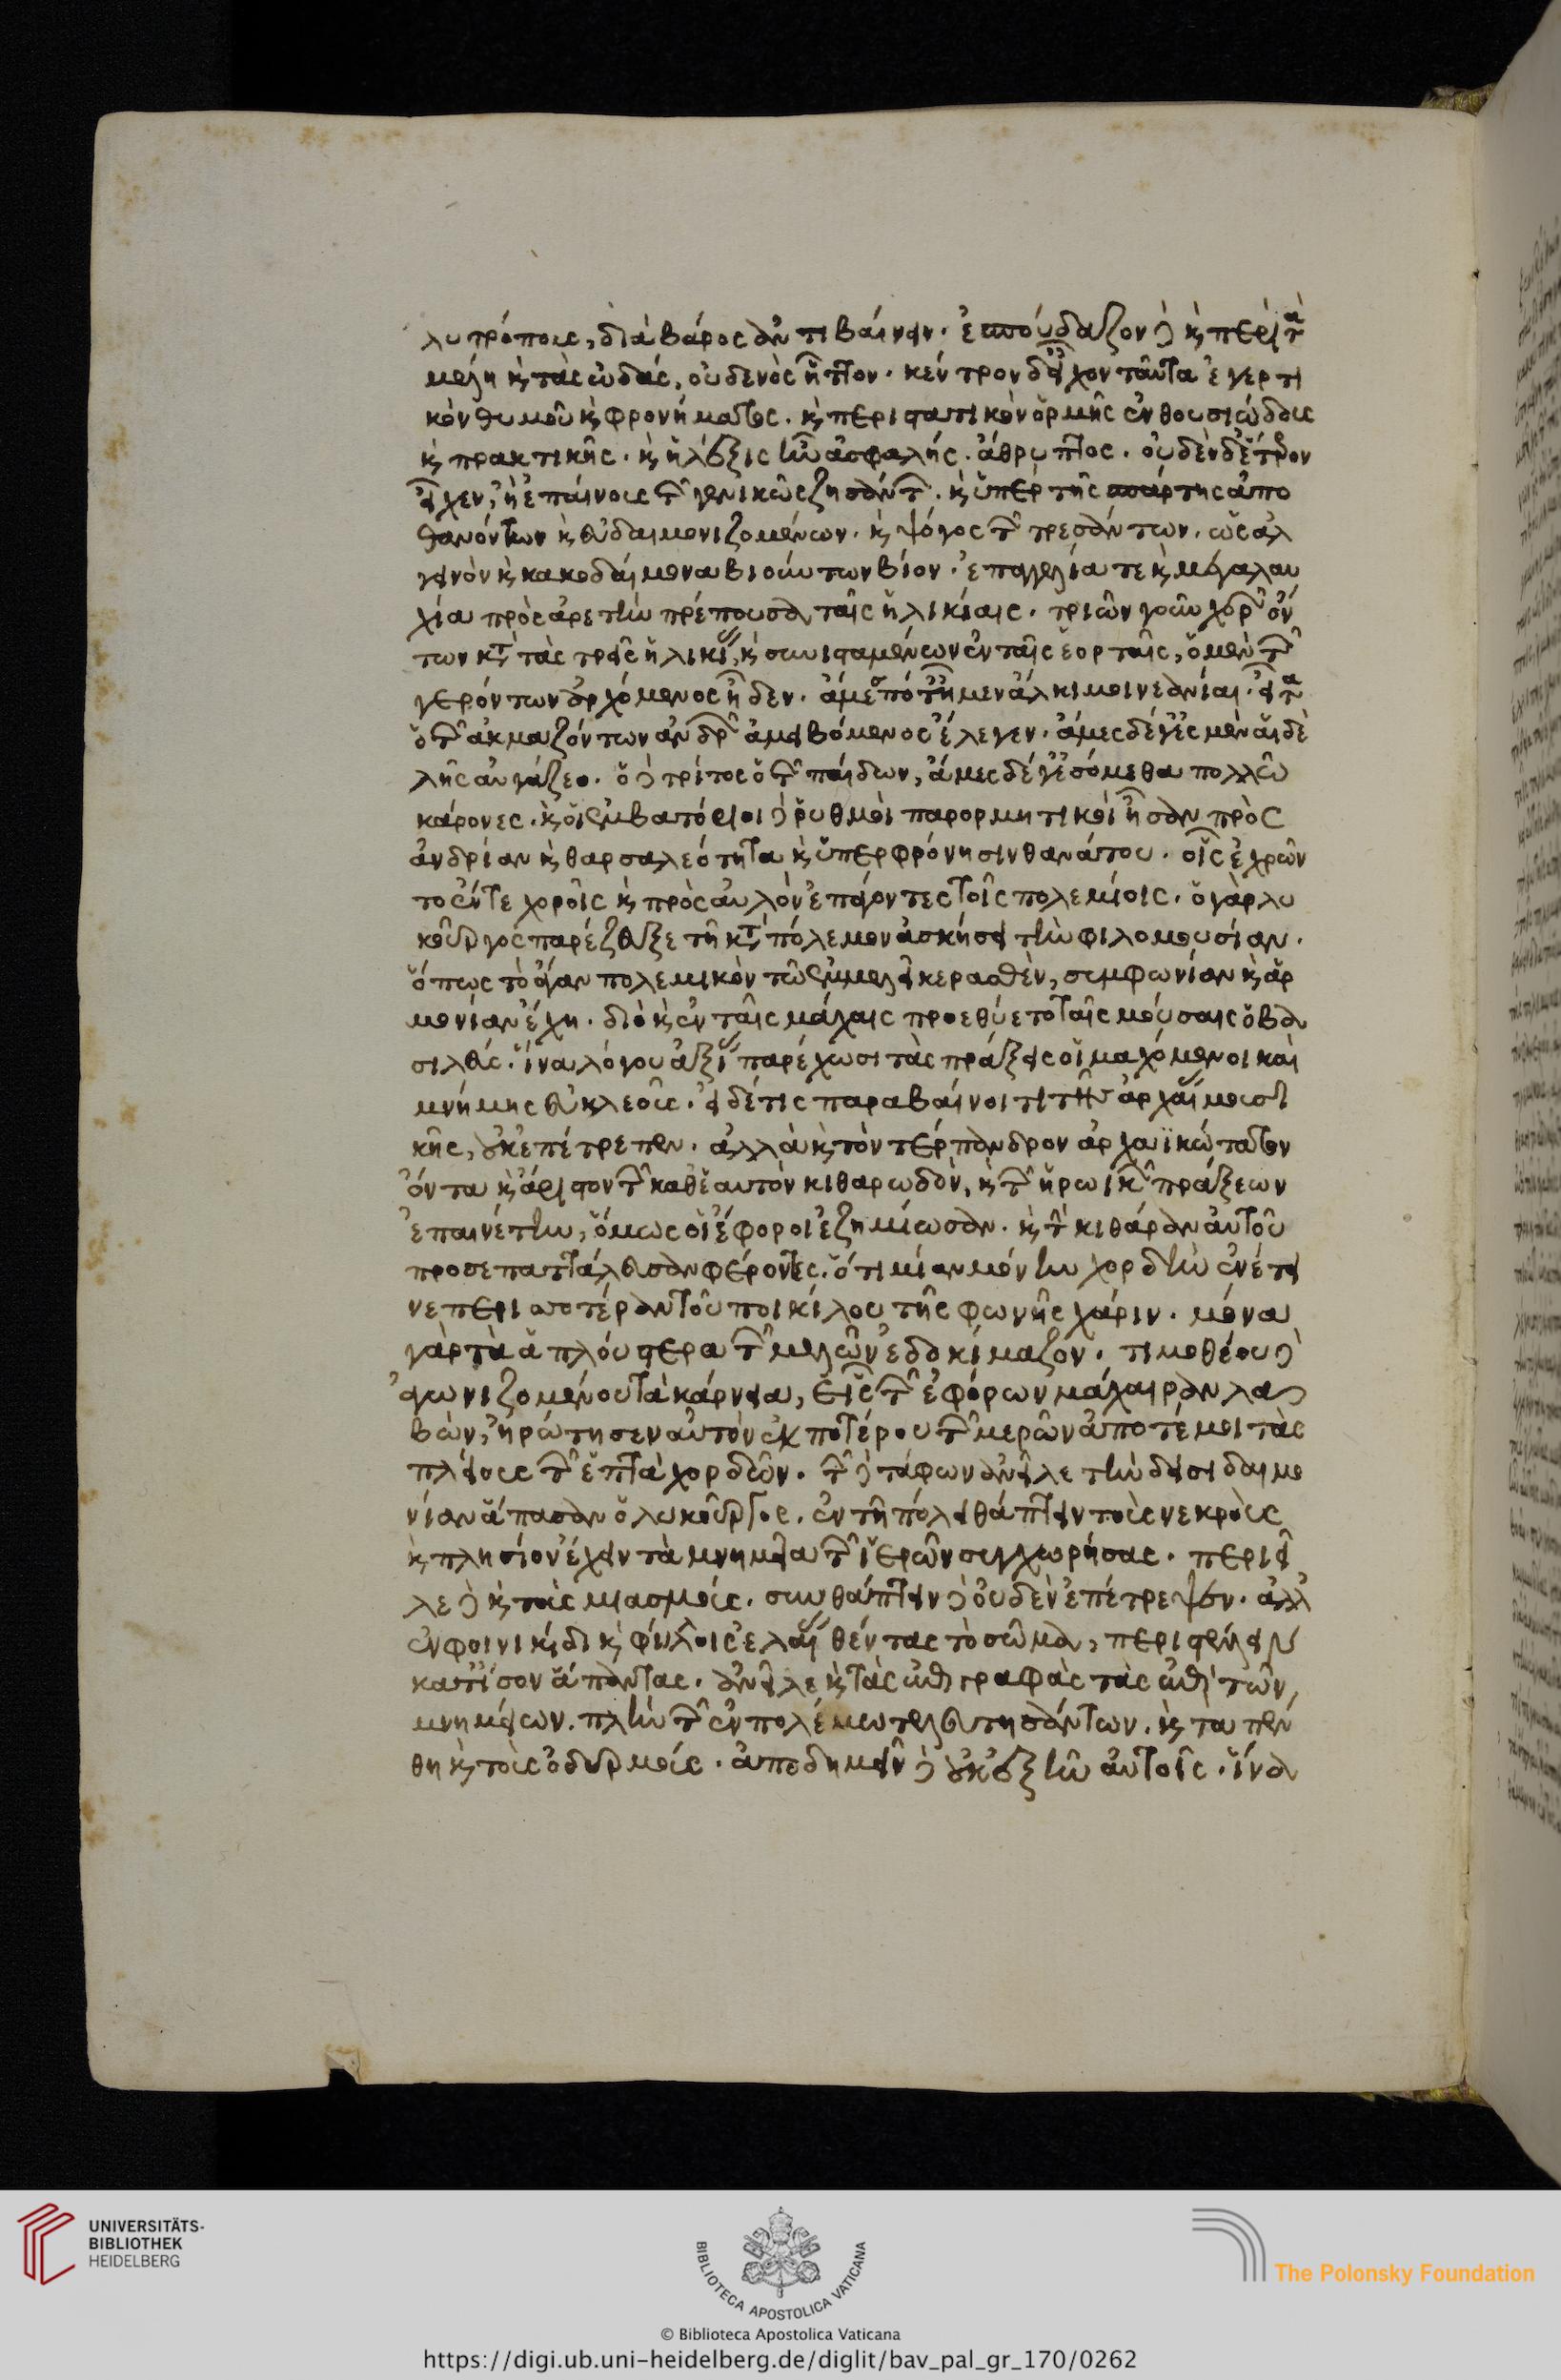 λυτρόποις, διὰ βάρος ἀντιβαίνειν. ἐσπούδαζον δὲ καὶ περὶ τὰ
μέλη καὶ τὰς ᾠδὰς, οὐδενὸς ἧττον. κέντρον δ' εἶχον ταῦτα ἐγερτι
κὸν θυμοῦ καὶ φρονήματος. καὶ περιστατικὸν ὁρμῆς ἐνθουσιώδους
καὶ πρακτικῆς. καὶ ἡ λέξις ἦν ἀσφαλής. ἄθρυπτος. οὐδὲν δ' ἕτερον
εἶχεν, ἢ ἐπαίνους τῶν γενικῶς ζησάντων. καὶ ὑπὲρ τῆς σπάρτης ἀπο
θανόντων καὶ εὐδαιμονιζομένων. καὶ ψόγος τῶν τρεσάντων. ὡς ἀλ
γεινὸν καὶ κακοδαίμονα βιούντων βίον. ἐπαγγελία τε καὶ μεγαλαυ
χία πρὸς ἀρετὴν πρέπουσα ταῖς ἡλικίαις. τριῶν γοῦν χορῶν ὄν
των κατὰ τὰς τρεῖς ἡλικίας, καὶ συνισταμένων ἐν ταῖς ἑορταῖς, ὁ μὲν τῶν
γερόντων ἀρχόμενος ᾖδεν. ἄμες πότ' ἦμεν ἄλκιμοι νεανίαι. εἶτα
ὁ τῶν ἀκμαζόντων ἀνδρῶν ἀμειβόμενος ἔλεγεν. ἄμες δέ γ' εἰς μὲν αἰ δὲ
λῆς αὐγάζεο. ὁ δὲ τρίτος ὁ τῶν παίδων, ἄμες δέ γ' ἐσόμεθα πολλῶ
κάρονες. καὶ οἱ ἐμβατόριοι δὲ ῥυθμοὶ παρορμητικοὶ ἦσαν πρὸς
ἀνδρίαν καὶ θαρσαλεότητα καὶ ὑπερφρόνησιν θανάτου. οἷς ἐχρῶν
το ἔν τε χοροῖς καὶ πρὸς αὐλὸν ἐπάγοντες τοῖς πολεμίοις. ὁ γὰρ λυ
κοῦργος παρέζευξε τῇ κατὰ πόλεμον ἀσκήσει τὴν φιλομουσίαν.
ὅπως τὸ ἄγαν πολεμικὸν τῷ ἐμμελεῖ κερασθὲν, συμφωνίαν καὶ ἁρ
μονίαν ἔχῃ. διὸ καὶ ἐν ταῖς μάχαις προεθύετο ταῖς μούσαις ὁ βα
σιλεύς. ἵνα λόγου ἀξίας παρέχωσι τὰς πράξεις οἱ μαχόμενοι καὶ
μνήμης εὐκλεοῦς. εἰ δέ τις παραβαίνοι τι τῆς ἀρχαίας μουσι
κῆς, οὐκ ἐπέτρεπεν. ἀλλὰ καὶ τὸν τέρπανδρον ἀρχαϊκώτατον
ὄντα καὶ ἄριστον τῶν καθ' ἑαυτὸν κιθαρωδὸν, καὶ τῶν ἡρωικῶν πράξεων
ἐπαινέτην, ὅμως οἱ ἔφοροι ἐζημίωσαν. καὶ τὴν κιθάραν αὐτοῦ
προσεπαττάλευσαν φέροντες. ὅτι μίαν μόνην χορδὴν ἐνέτει
νε περισσοτέραν τοῦ ποικίλου τῆς φωνῆς χάριν. μόνα
γὰρ τὰ ἁπλούστερα τῶν μελῶν ἐδοκίμαζον. τιμοθέου δὲ
ἀγωνιζομένου τὰ κάρνεια, εἷς τῶν ἐφόρων μάχαιραν λα
βὼν, ἠρώτησεν αὐτὸν ἐκ ποτέρου τῶν μερῶν ἀποτέμοι τὰς
πλείους τῶν ἑπτὰ χορδῶν. τῶν δὲ τάφων ἀνεῖλε τὴν δεισιδαιμο
νίαν ἅπασαν ὁ λυκοῦργος. ἐν τῇ πόλει θάπτειν τοὺς νεκροὺς
καὶ πλησίον ἔχειν τὰ μνημεῖα τῶν ἱερῶν συγχωρήσας. περιεῖ
λε δὲ καὶ τοὺς μιασμούς. συνθάπτειν δὲ οὐδὲν ἐπέτρεψεν. ἀλλ'
ἐν φοινικίδι καὶ φύλλοις ἐλαίας θέντας τὸ σῶμα, περιστέλλειν
κατ' ἴσον ἅπαντας. ἀνεῖλε καὶ τὰς ἐπιγραφὰς τὰς ἐπὶ τῶν
μνημείων. πλὴν τῶν ἐν πολέμω τελευτησάντων. καὶ τὰ πέν
θη καὶ τοὺς ὀδυρμούς. ἀποδημεῖν δὲ οὐκ ἐξῆν αὐτοῖς. ἵνα
UNIVERSITÄTS-
BIBLIOTHEK
HEIDELBERG
BIBLIOTECA APOSTOLICA VATICANA
The Polonsky Foundation
© Biblioteca Apostolica Vaticana
https://digi.ub.uni-heidelberg.de/diglit/bav_pal_gr_170/0262